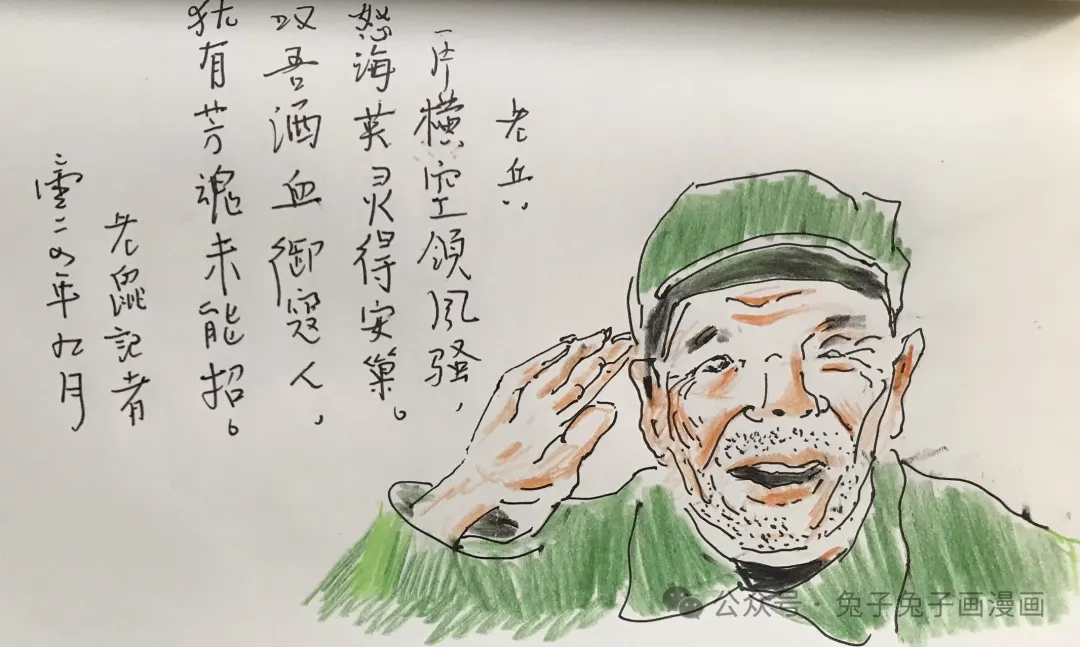 老兵
一片横空領风骚，
怒海英灵得安巢。
叹吾洒血御寇人，
犹有芳魂未能招。
老鼠記者
二零二四年九月
公众号 · 兔子兔子画漫画